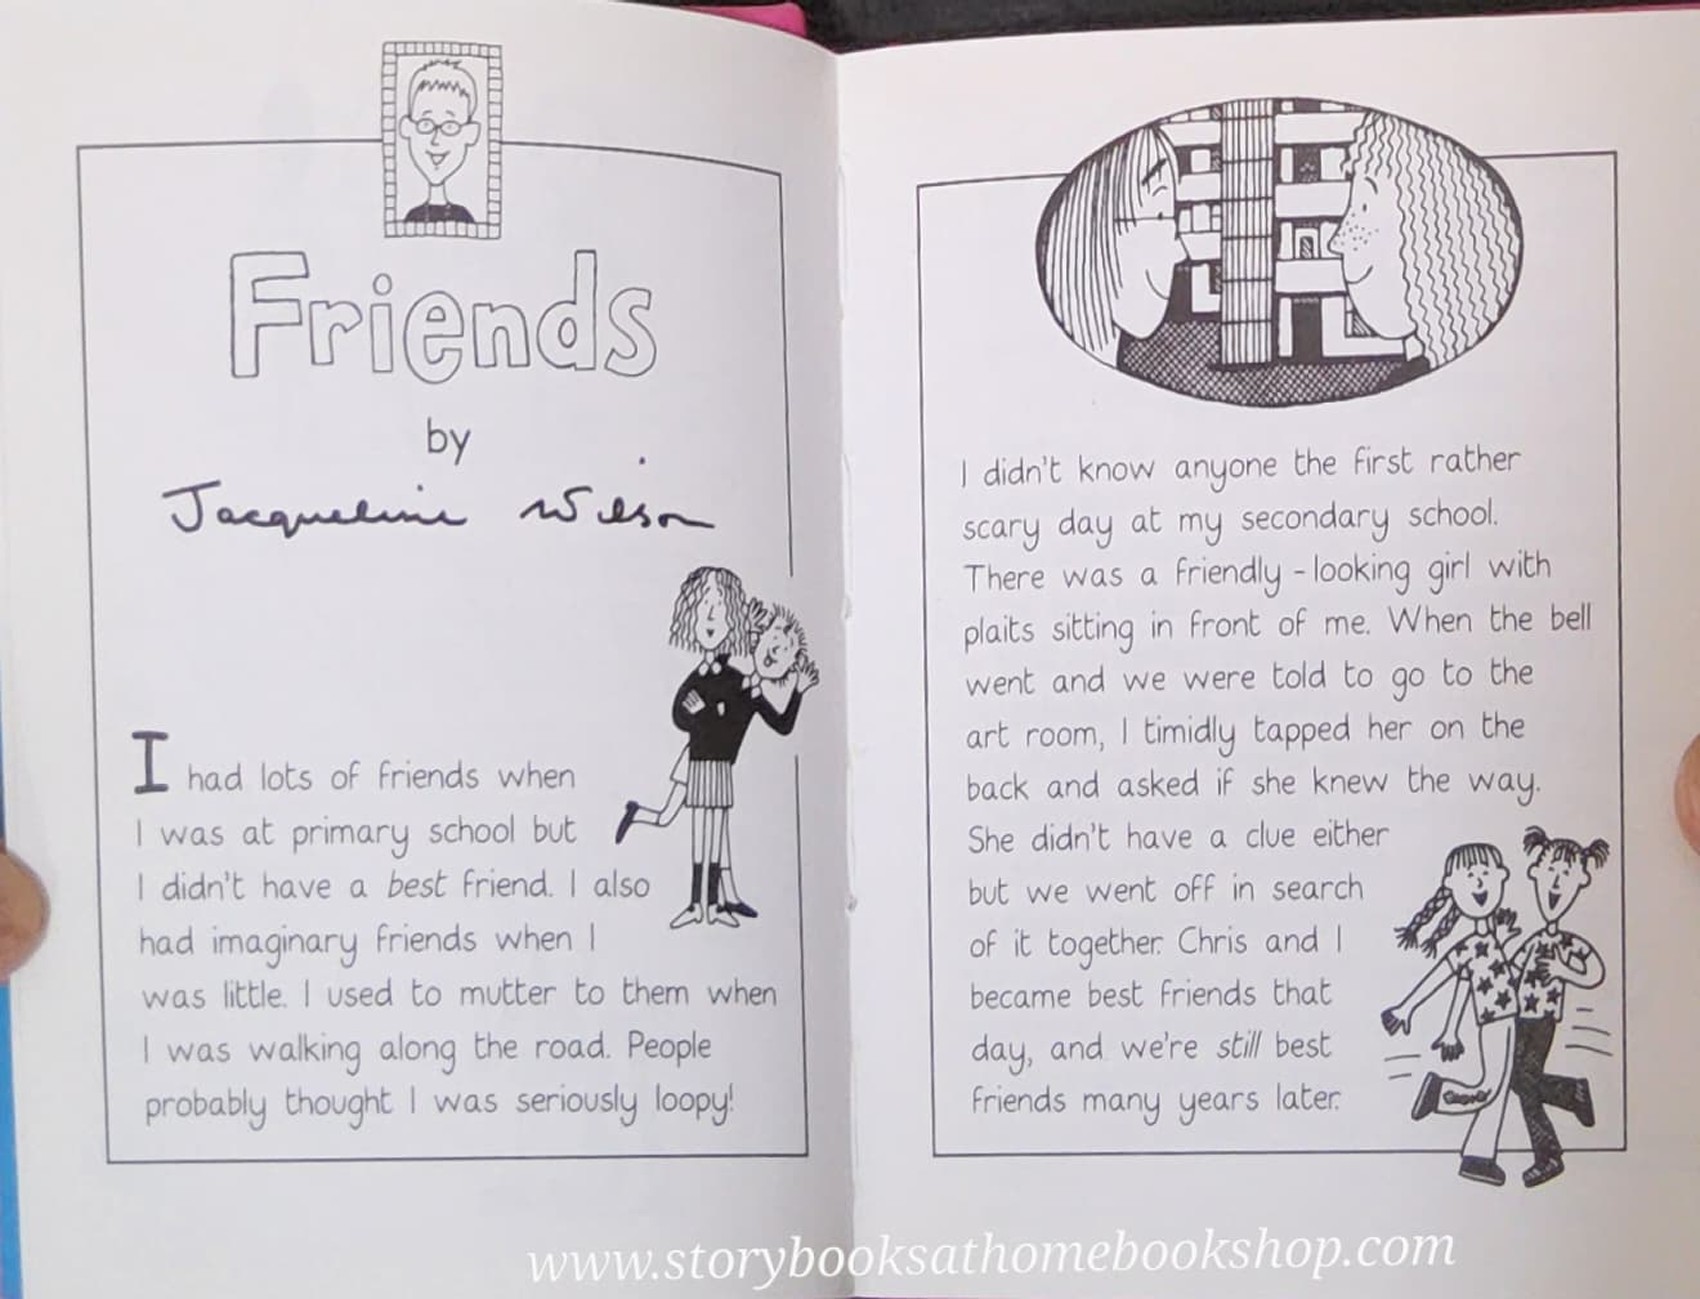 Friends
by
Jacqueline Wilson
I had lots of friends when
I was at primary school but
I didn't have a best friend. I also
had imaginary friends when I
was little. I used to mutter to them when
I was walking along the road. People
probably thought I was seriously loopy!
I didn't know anyone the first rather
scary day at my secondary school.
There was a friendly-looking girl with
plaits sitting in front of me. When the bell
went and we were told to go to the
art room, I timidly tapped her on the
back and asked if she knew the way.
She didn't have a clue either
but we went off in search
of it together. Chris and I
became best friends that
day, and we're still best
friends many years later.
www.storybooksathomebookshop.com